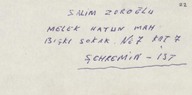 SALİM ZOROĞLU
MELEK HATUN MAH.
BIÇKI SOKAK. No 7 KAT 7
ŞEHREMİN - İST